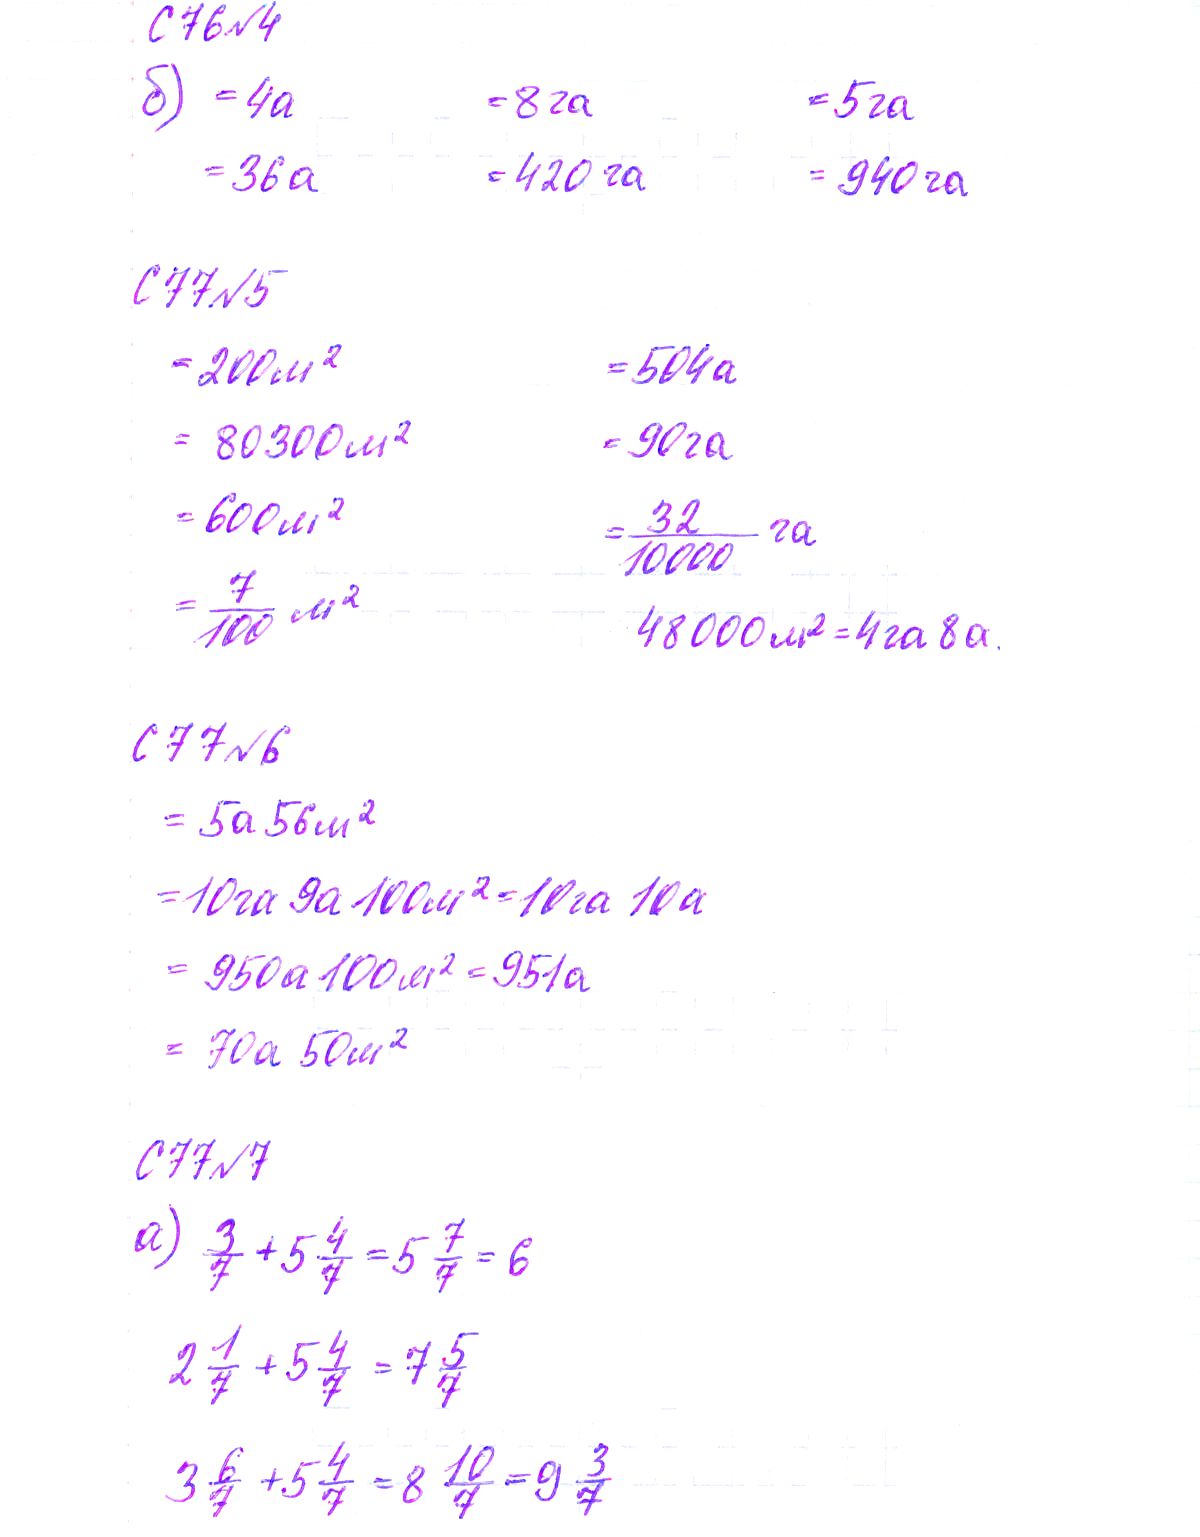 С 76 № 4
б) = 4а = 8 га = 5 га
= 36 а = 420 га = 940 га
С 77 № 5
= 200 м² = 504 а
= 80300 м² = 90 га
= 600 м² = 32/10000 га
= 7/100 м² 48000 м² = 4 га 8 а.
С 77 № 6
= 5а 56 м²
= 10 га 9а 100 м² = 10 га 10 а
= 950 а 100 м² = 951 а
= 70 а 50 м²
С 77 № 7
а) 3/7 + 5 4/7 = 5 7/7 = 6
2 1/7 + 5 4/7 = 7 5/7
3 6/7 + 5 4/7 = 8 10/7 = 9 3/7